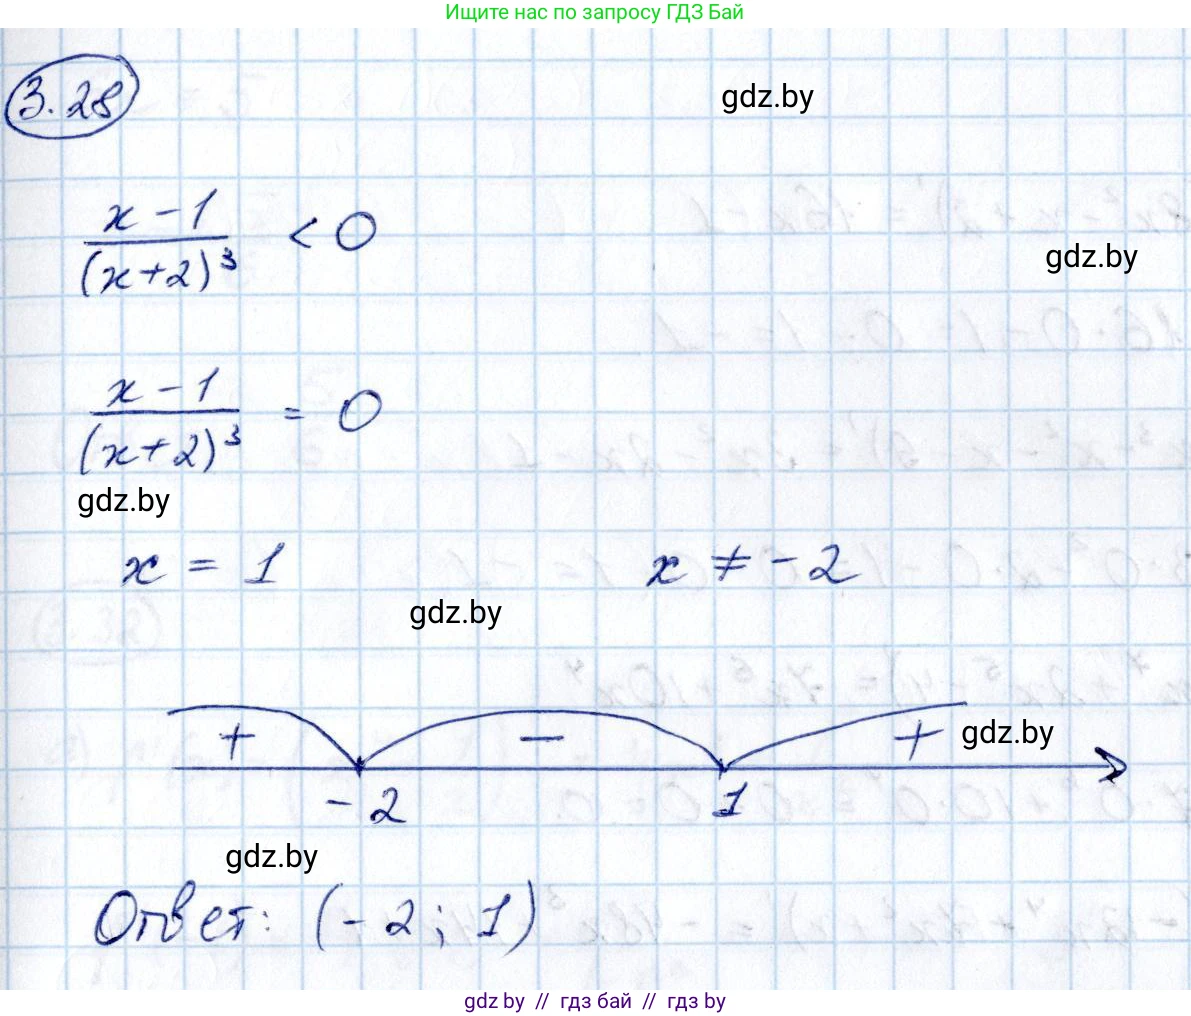 Ищите нас по запросу ГДЗ Бай
3.28
gdz.by
x - 1 / (x+2)³ < 0
gdz.by
x - 1 / (x+2)³ = 0
gdz.by
x = 1 x ≠ -2
gdz.by
+ - + gdz.by
-2 1
gdz.by
Ответ: (-2; 1)
gdz.by // гдз бай // гдз by